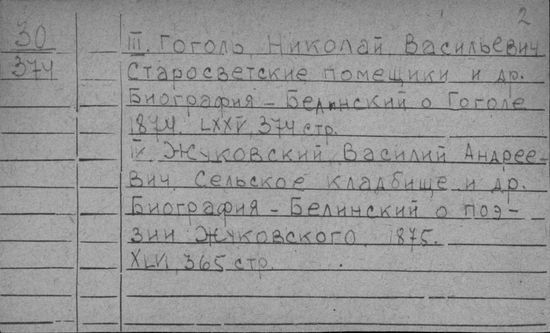 2
30
374
III. Гоголь, Николай Васильевич
Старосветские помещики и др.
Биография – Белинский о Гоголе
1874. LXXV, 374 стр.
IV. Жуковский, Василий Андрее-
вич. Сельское кладбище и др.
Биография – Белинский о поэ-
зии Жуковского. 1875.
XLVI, 365 стр.